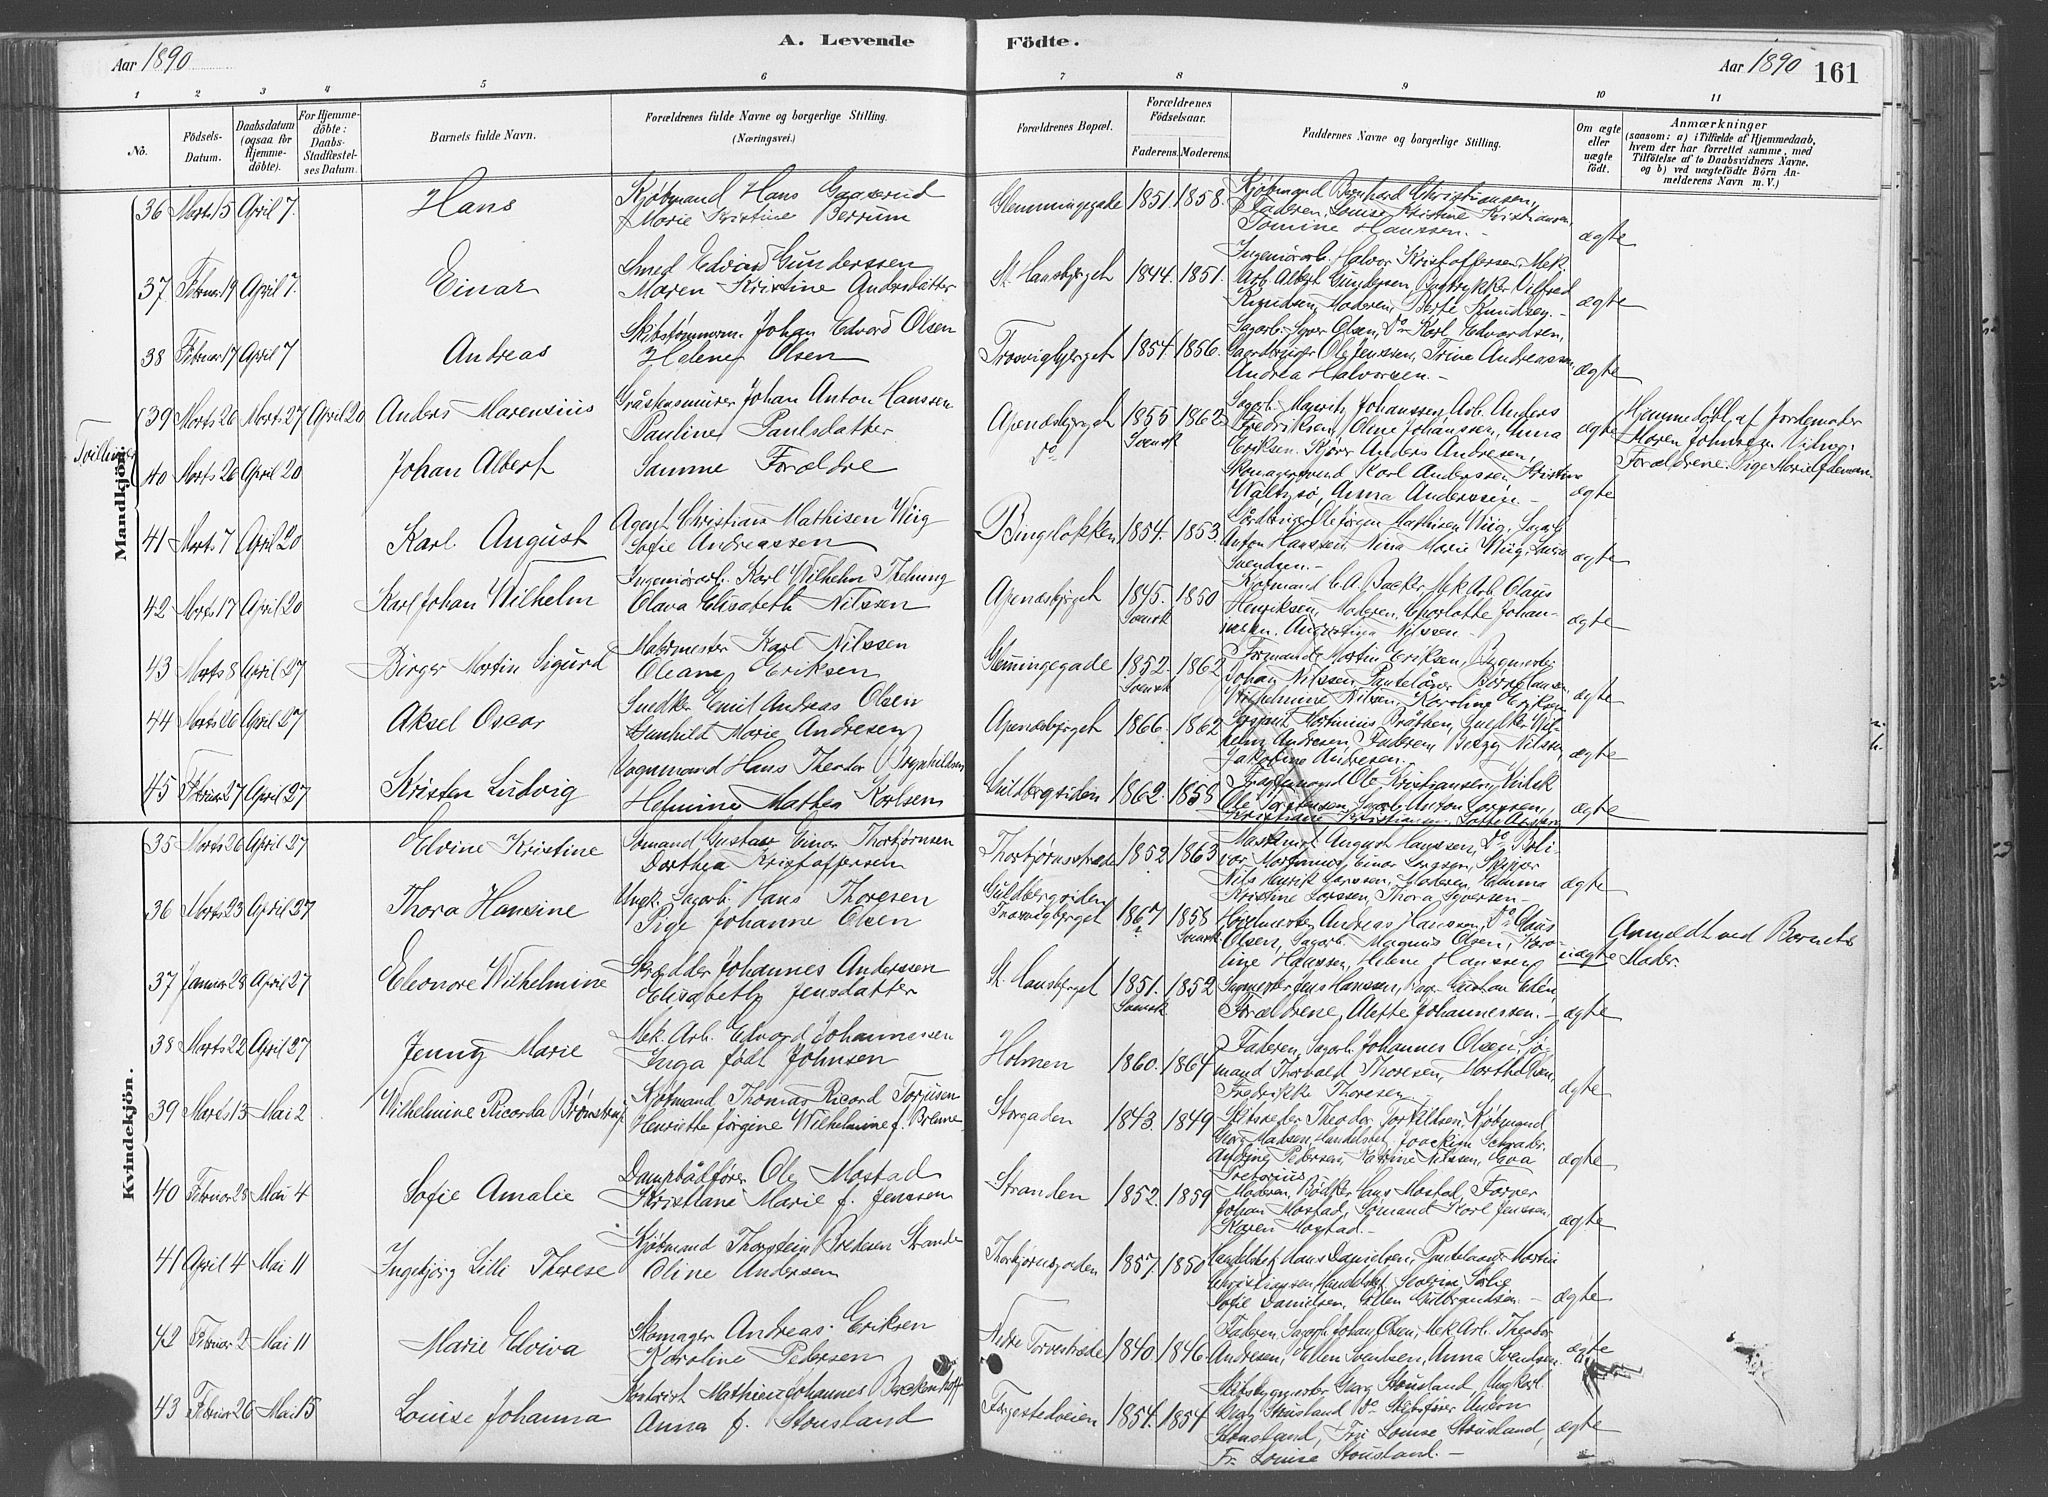 Aar 1890
A. Levende
Födte.
Aar 1890 161
1 2 3 4 5 6 7 8 9 10 11
No.
Födsels-
Datum.
Daabsdatum
(ogsaa for
Hjemme-
döbte).
For Hjemme-
döbte:
Daabs-
Stadfæstel-
ses Datum.
Barnets fulde Navn.
Forældrenes fulde Navne og borgerlige Stilling.
(Næringsvei.)
Forældrenes Bopæl.
Forældrenes
Födselsaar.
Faderens. Moderens.
Faddernes Navne og borgerlige Stilling.
Om ægte
eller
uægte
födt.
Anmærkninger
(saasom: a) i Tilfælde af Hjemmedaab,
hvem der har forrettet samme, med
Tilföielse af to Daabsvidners Navne,
og b) ved uægtefödte Börn An-
melderens Navn m. V.)
Mandkjön.
36 Marts 15 April 7. Hans
Kjøbmand Hans Gaaserud
Marie Kristine Berrum
Glemmingegade 1851 1858.
Kjøbmand Bernhard Christiansen,
Faderen, Louise Kristine Kristiansen,
Tomine Hanssen. -
ægte
37 Februar 19 April 7. Einar
Smed Edvard Gunderssen
Maren Kristine Andersdatter
St. Hansbjerget 1844. 1851.
Ingeniørarb. Halvor Kristoffersen, Mek.
Arb. Albert Gundersen, Bogtrykker Vilfred
Knudsen, Moderen, Berte Knudsen. -
ægte
38 Februar 17 April 7 Andreas
Skibstømmerm. Johan Edvard Olsen
Helene Olsen
Trosvigbjerget 1854. 1856.
Sagarb. Syver Olsen, Do Karl Edvardsen,
Gaardbruger Ole Jenssen, Trine Andreassen,
Andrea Halvorsen. -
ægte
Tvillinger
39 Marts 26 Marts 27 April 20 Anders Marensius
Gråstensmurer Johan Anton Hanssen
Pauline Paulsdatter
Apenæsbjerget 1855 1862
Do Svensk
Sagarb. Mauritz Johanssen, Arb. Anders
Fredriksen, Oline Johanssen, Anna
Eriksen. Kjører Anders Andresen,
ægte
Hjemmedøbt af Jordemoder
Maren Johnsen. Vidner:
Forældrene. Pige Marie
40 Marts 26 April 20 Johan Albert
Samme Forældre
Skomagersvend Karl Anderssen, Kristine
Anna Anderssen -
ægte
41 Mart. 7 April 20 Karl August
Agent Christian Mathisen Wiig
Sofie Andreassen
Bingsløkken 1854. 1853.
Gårdbruger Ole Jørgen Mathisen Wiig, Sagarb.
Anton Hanssen, Nina Marie Wiig,
Svendsen. -
ægte
42 Marts 17 April 20 Karl Johan Wilhelm
Ingeniørarb. Karl Wilhelm Thelning
Olava Elisabeth Nilssen
Apenæsbjerget 1845. 1850
Svensk
Kjøbmand C. A. Backer, Mek. Arb. Claus
Henriksen, Moderen, Charlotte Johan-
nesen. Augustina Nilssen -
ægte
43 Marts 8 April 27 Birger Martin Sigurd
Karl Nilssen
Oleane Eriksen
Glemmingegade 1852. 1862
Svensk
Formand Martin Eriksen,
Johan Nilssen, Hansen,
Wilhelmine Nilsen, Karoline Eriksen
ægte
44 Marts 26 April 27 Aksel Oscar
Snedker Emil Andreas Olsen
Gunhild Marie Andresen
Apenæsbjerget 1866. 1862
Martinius Bråthen, Snedker Wil-
helm Andresen, Faderen, Nilssen,
Jakobine Andresen. -
ægte
45 Februar 27 April 27 Kristen Ludvig
Vognmand Hans Theodor Brynhildsen
Hermine Mathea Karlsen
Guldbergsiden 1862. 1858
Fragtemand Ole Kristiansen,
Ole Torstensen, Sagarb. Anton Larssen,
ægte
Kvindekjön.
35 Marts 26 April 27 Elvine Kristine
Sømand Gustav Einar Thorbjørnsen
Dorthea Kristoffersen
Thorbjørnsstræde 1852 1863
Maskinist August Hanssen, Do
Skipper
Nils Henrik Larssen, Moderen, Emma
Kristine Larssen, Thora Syversen -
ægte
36 Marts 23 April 27 Thora Hansine
Ungk. Sagarb. Hans Thoresen
Pige Johanne Olsen
Guldbergsiden
Trosvigbjerget 1867 1858
Svensk
Andreas Hanssen, Do Claus
Olsen, Sagarb. Magnus Olsen, Karo-
line Hanssen, Helene Hanssen
uægte
Anmeldt ved Barnets
Moder.
37 Januar 28 April 27 Eleonore Wilhelmine
Skrædder Johannes Anderssen
Elisabeth Jensdatter
St. Hansbjerget 1851. 1852
Svensk
Jens Hanssen, Gustav
Forældrene, Alette Johannessen. -
ægte
38 Marts 22 April 27 Jenny Marie
Mek. Arb. Edvard Johannessen
Inga født Johnsen
Holmen 1860. 1864
Faderen, Sagarb. Johannes Olsen, Sø-
mand Thorvald Thoresen, Martha Olsen,
Fredrikke Thoresen
ægte
39 Marts 13 Mai 2 Wilhelmine Ricorda Brønstrup
Kjøbmand Thomas Ricord Torjusen
Henriette Jørgine Wilhelmine f.
Storgaden 1843. 1849
Skibsreder Theodor Torkildsen, Kjøbmand
Georg Madsen, Handelsbet. Joackim Schrader,
Andrine Pedersen, Katrine Nilssen,
Pretorius
ægte
40 Februar 28 Mai 4 Sofie Amalie
Dampbåtfører Ole Mostad
Kristiane Marie f. Jenssen
Stranden 1852. 1859
Moderen, Bødker Hans Mostad, Farver
Johan Mostad, Sømand Karl Jenssen,
Karen Mostad. -
ægte
41 April 4 Mai 11 Ingebjørg Lilli Therese
Kjøbmand Thorstein Bredesen Strande
Oline Andersen
Thorbjørnsgården 1857 1850
Handelsbet. Hans Danielsen, Pantelaaner Martin
Christiansen, Handelsbet. Severin Sørlie
Sofie Danielsen, Ellen Gulbrandsen. -
ægte
42 Februar 2 Mai 11 Marie Elvira
Skomager Andreas Eriksen
Karoline Pedersen
Nedre Torvestræde 1840 1846
Faderen, Sagarb. Johan Olsen, Mek. Arb. Theodor
Andresen, Ellen Svendsen, Anna Svendsen
ægte
43 Februar 26 Mai 15 Louise Johanna
Mathieu Johannes
Anna f. Stousland
Færgestedveien 1854. 1854
Skibsbygmester Georg Stousland, Ungkarl
Stousland, Do Skibsfører Anton
Stousland, Fru Louise Stousland,
Fr. Louise Stousland. -
ægte